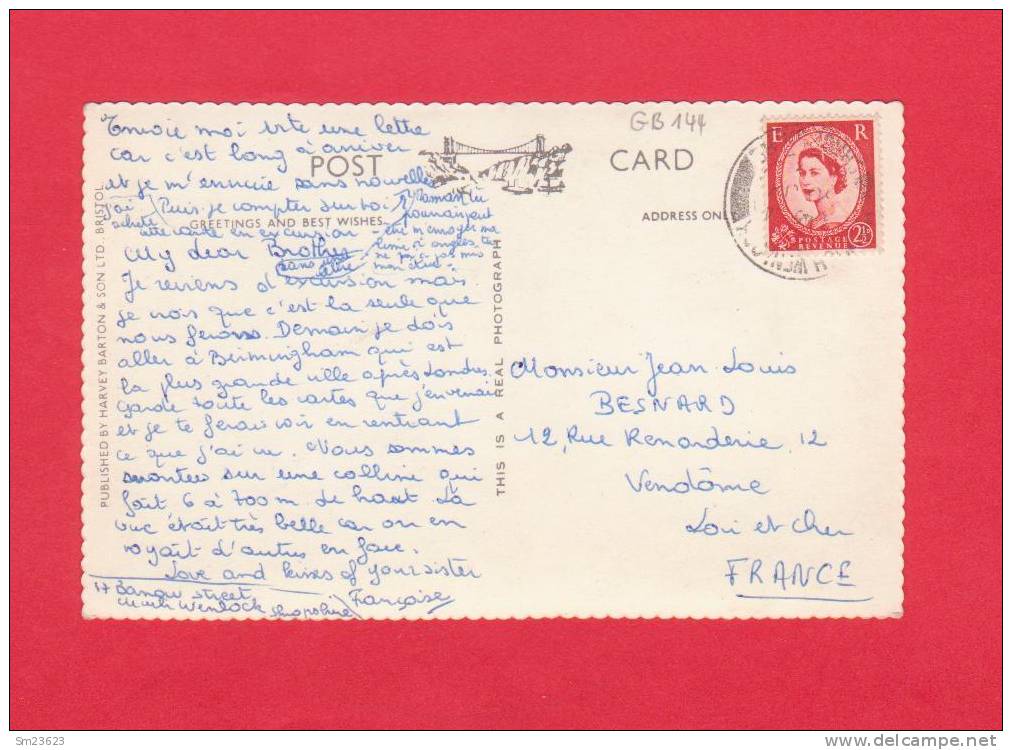 Envoie moi vite une lettre
car c'est long à arriver
et je m'ennuie sans nouvelles
Puis-je compter sur toi?
J'ai acheté
cette carte en excursion
Maman tu
pourrais
POST CARD
GB 144
E R
POSTAGE
REVENUE
2½D
GREETINGS AND BEST WISHES
ADDRESS ONLY
My dear Brother
Je reviens d'excursion mais
je crois que c'est la seule que
nous ferons. Demain je dois
aller à Birmingham qui est
la plus grande ville après Londres.
Garde toute les cartes que j'envoie
et je te ferai voir en rentrant
ce que j'ai vu. Nous sommes
montées sur une colline qui
fait 6 à 700 m. de haut. La
vue était très belle car on en
voyait d'autres en face.
Love and kisses of your sister
Françoise
17 Barrow street
Much Wenlock Shropshire
PUBLISHED BY HARVEY BARTON & SON LTD. BRISTOL
THIS IS A REAL PHOTOGRAPH
Monsieur Jean Louis
BESNARD
12, Rue Renarderie 12
Vendôme
Loir et Cher
FRANCE
Sm23623
www.delcampe.net